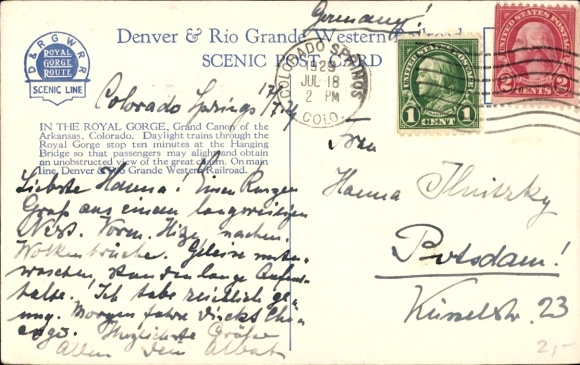 Germany!
Denver & Rio Grande Western Railroad
SCENIC POST CARD
D & R G W R R
ROYAL
GORGE
ROUTE
SCENIC LINE
COLORADO SPRINGS
COLO.
JUL 18
2 PM
1929
UNITED STATES POSTAGE
1 CENT 1
UNITED STATES POSTAGE
2 CENTS 2
Colorado Springs 17/7.29
IN THE ROYAL GORGE, Grand Canon of the
Arkansas, Colorado. Daylight trains through the
Royal Gorge stop ten minutes at the Hanging
Bridge so that passengers may alight and obtain
an unobstructed view of the great chasm. On main
line, Denver & Rio Grande Western Railroad.
Liebste Hanna! Einen kurzen
Gruß aus einem langweiligen
Nest. Vorm. Hize, nachm.
Wolkenbrüche. Geleise unter-
waschen, stundenlange Aufent-
halte. Ich habe reichlich ge-
nug. Morgen fahre direkt Chi-
cago. Herzlichste Grüße
Allen Dein Albert
Frau
Hanna
Potsdam!
Küsselstr. 23
2,-